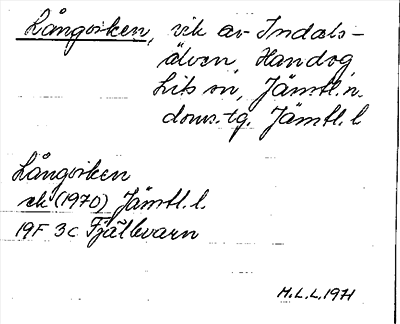 Långviken, vik av Indals-
älven, Handog
Lits sn, Jämtl. n.
doms.tg. Jämtl. l
Långviken
ek (1970) Jämtl. l.
19F 3c Fjällkvarn
H.L.L. 1971